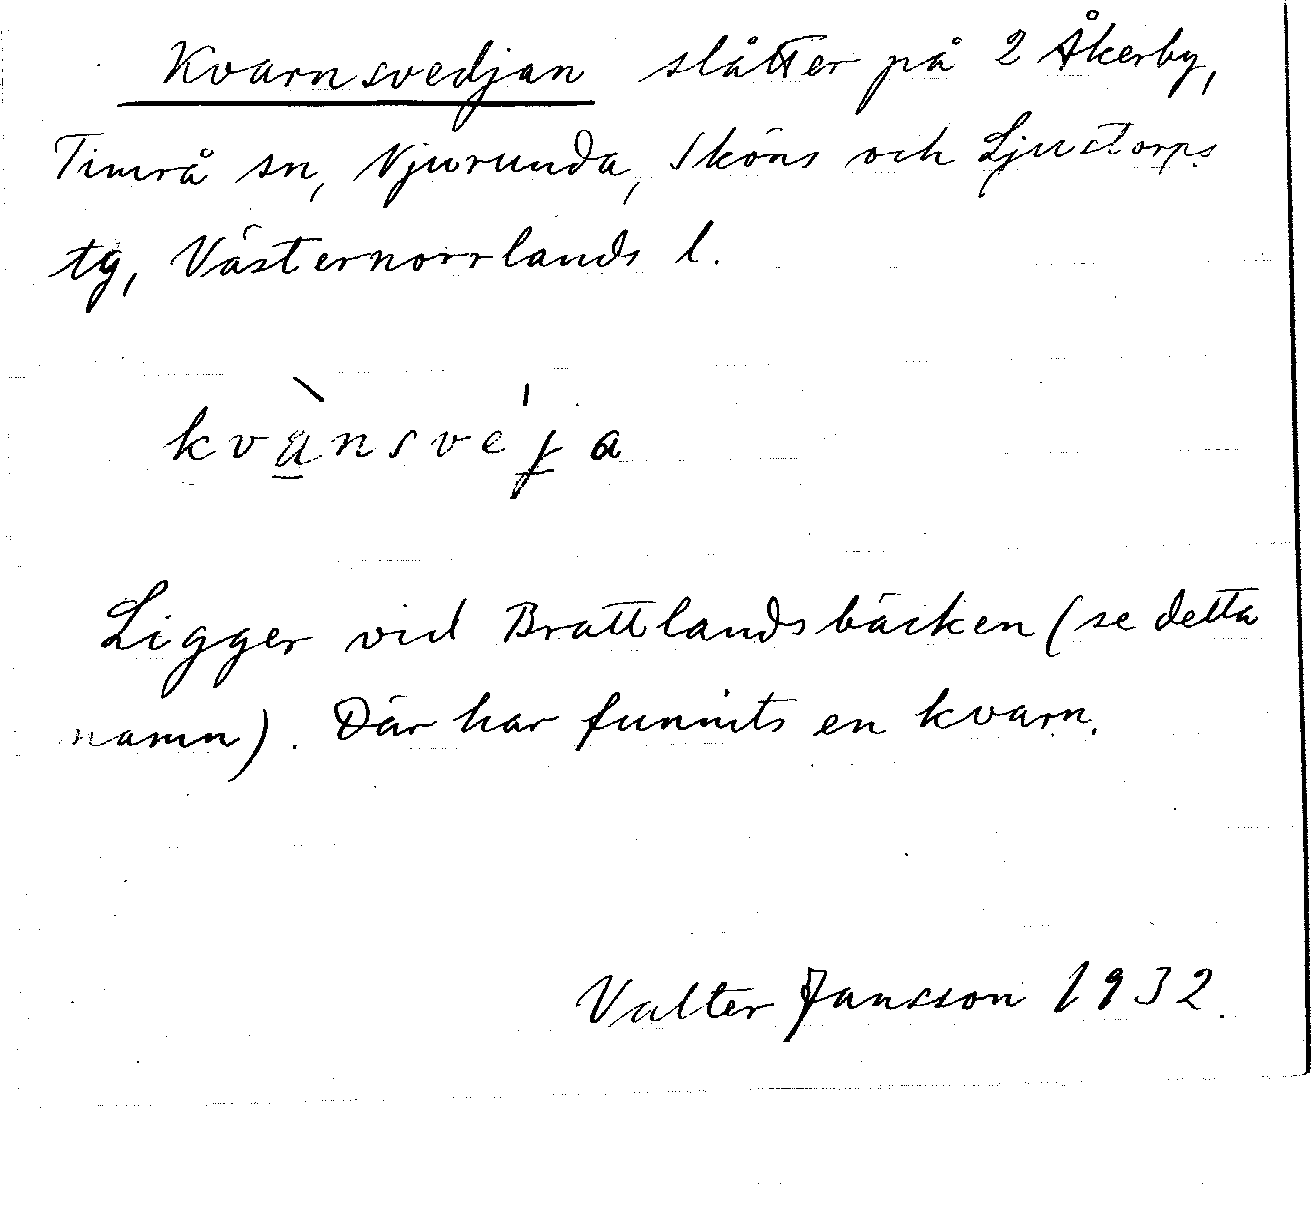 Kvarnsvedjan slåtter på 2 Åkerby,
Timrå sn, Njurunda, Sköns och Ljustorps
tg, Västernorrlands l.
kvànsve̍ɟa
Ligger vid Brattlandsbäcken (se detta
namn). Där har funnits en kvarn.
Valter Jansson 1932.